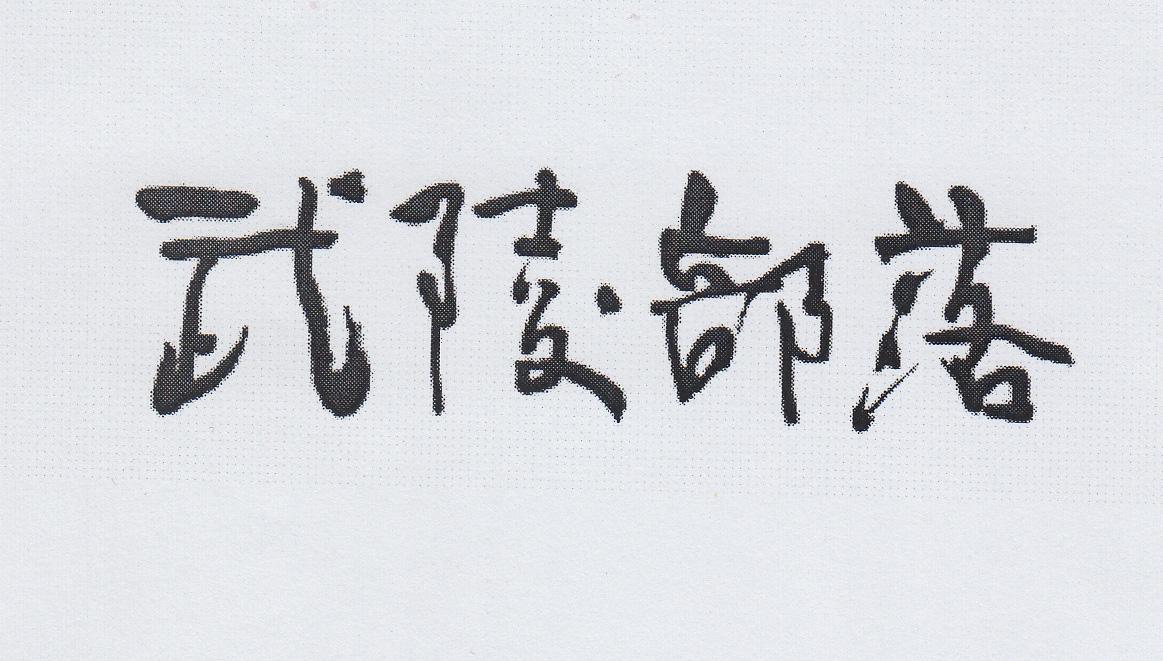 武陵部落